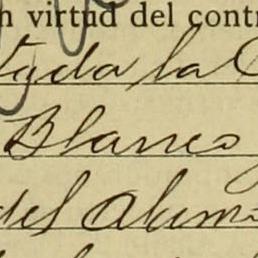 n virtud del contr
tada la C
Blanco
del Alum